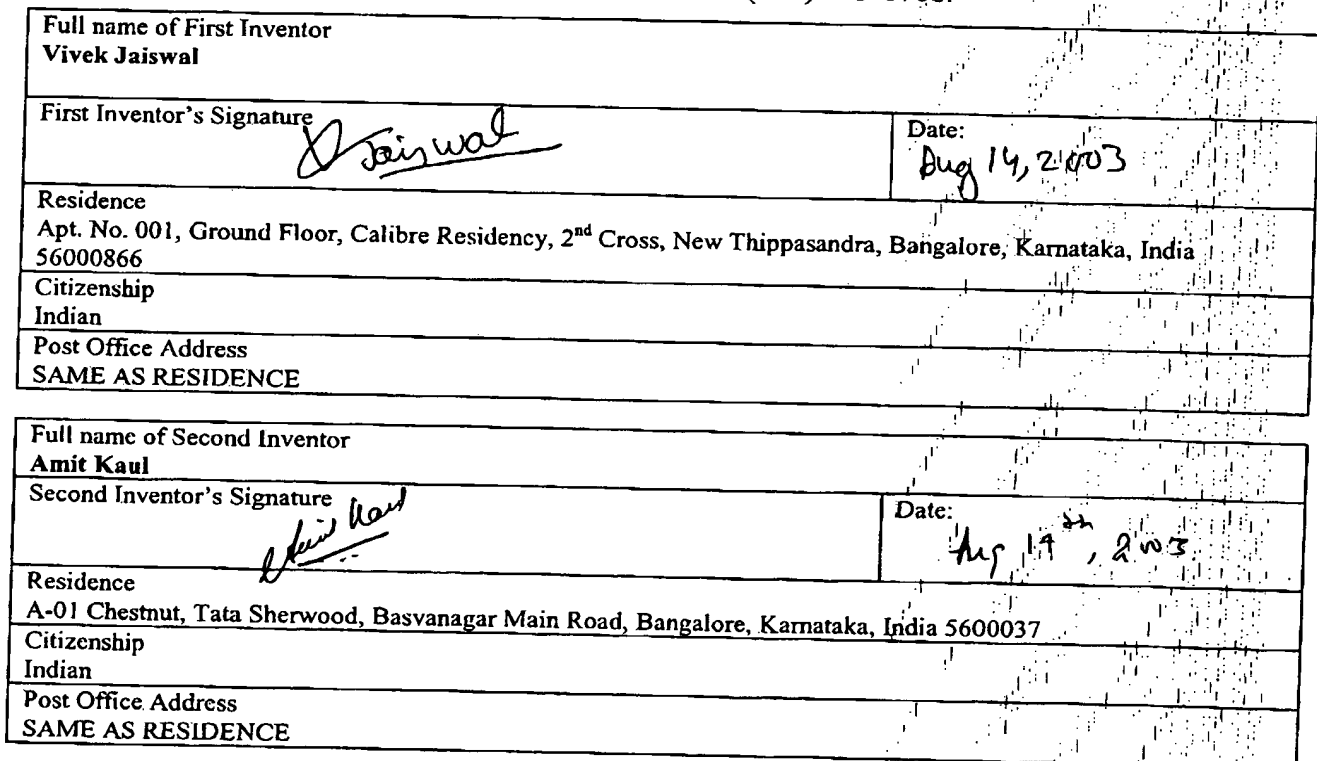 Full name of First Inventor
Vivek Jaiswal
First Inventor's Signature
Jaiswal
Date:
Aug 14, 2003
Residence
Apt. No. 001, Ground Floor, Calibre Residency, 2nd Cross, New Thippasandra, Bangalore, Karnataka, India
56000866
Citizenship
Indian
Post Office Address
SAME AS RESIDENCE
Full name of Second Inventor
Amit Kaul
Second Inventor's Signature
Amit Kaul
Date:
Aug 14th, 2003
Residence
A-01 Chestnut, Tata Sherwood, Basvanagar Main Road, Bangalore, Karnataka, India 5600037
Citizenship
Indian
Post Office Address
SAME AS RESIDENCE